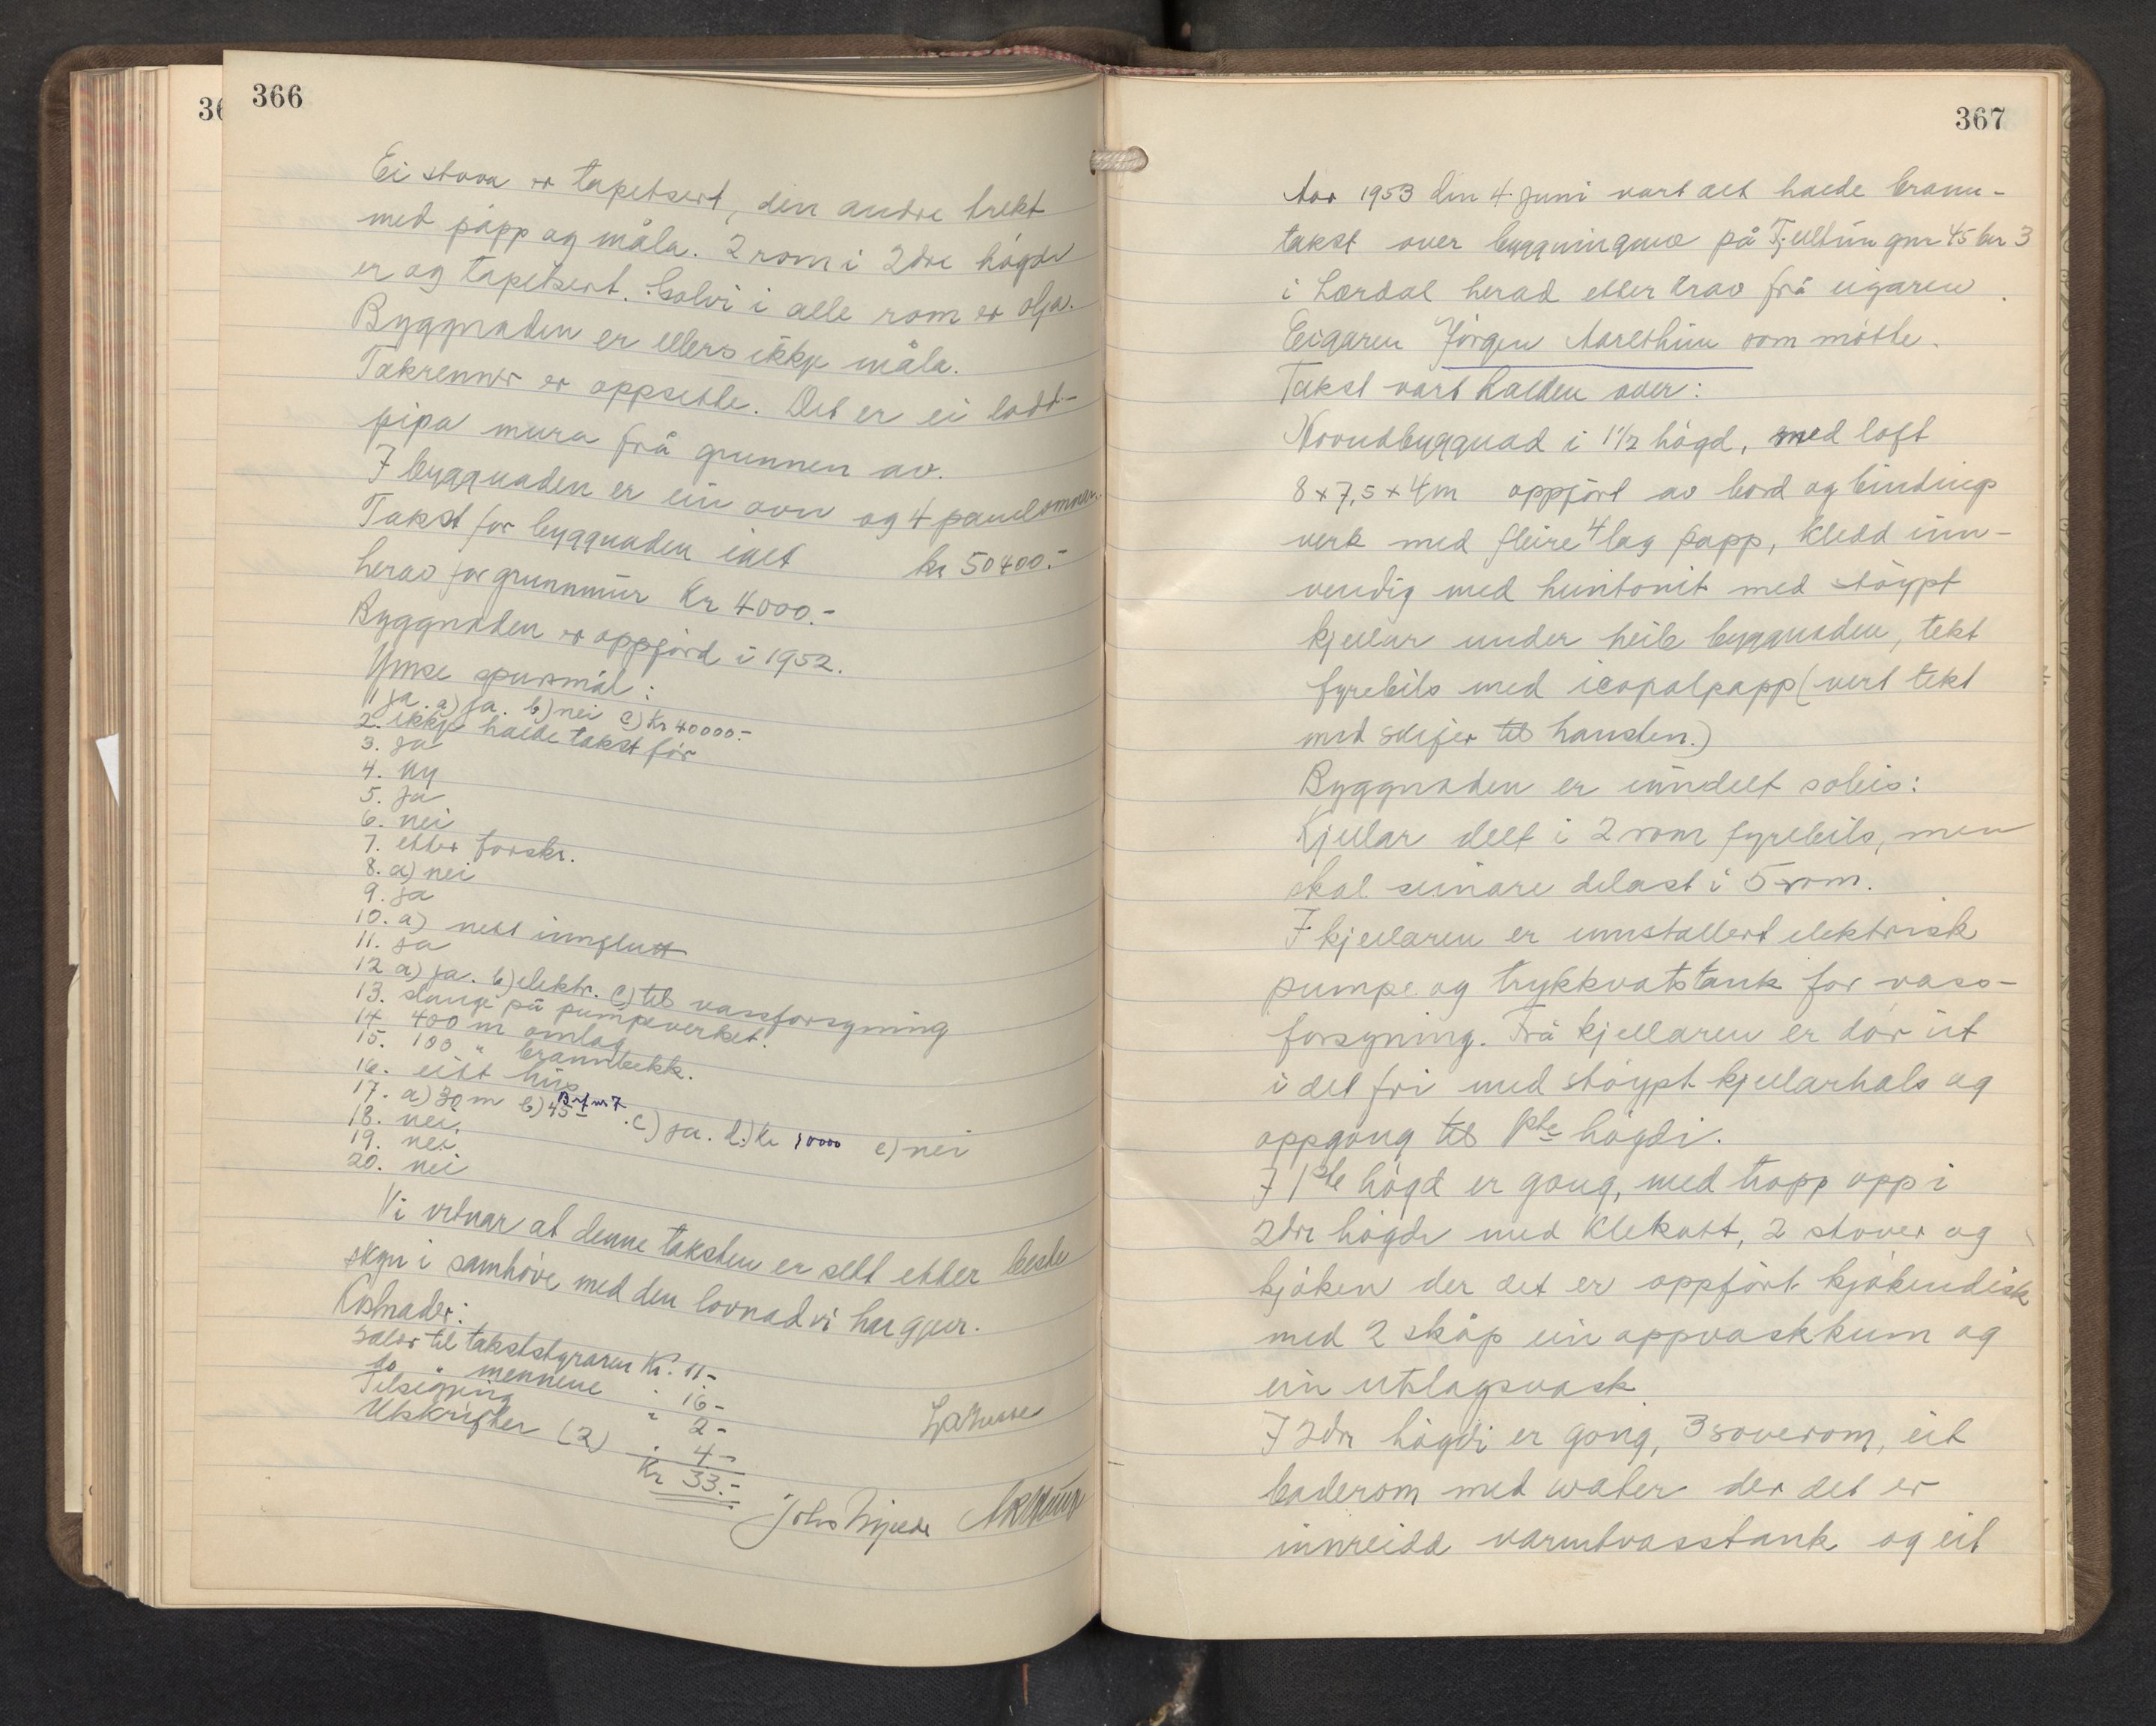 366
Ei stova er tapetsert, den andre trekt
med papp og måla. 2 rom i 2dre högdi
er og tapetsert. Golvi i alle rom er olja.
Byggnaden er ellers ikkje måla.
Takrenner er oppsette. Det er ei lodd-
pipa mura frå grunnen av.
I byggnaden er ein ovn og 4 panelomnar.
Takst for byggnaden ialt kr 50400.-
herav for grunnmur Kr 4000.-
Byggnaden er oppförd i 1952.
Ymse spursmål:
1 ja. a) ja. b) nei c) Kr 40000.-
2. ikkje halde takst för
3. ja
4. ny
5. ja
6. nei
7. etter forskr.
8. a) nei
9. ja
10. a) nett innflutt
11. ja
12 a) ja. b) elektr. c) til vassforsyning
13. slange på pumpeverket.
14 400 m omlag
15. 100 " brannbekk.
16. eitt hus
17. a) 30 m b) 45 Br.f. nr 7. c) ja. d.) Kr 10000 e) nei
18. nei.
19. nei
20. nei
Vi vitnar at denne taksten er sett etter beste
skyn i samhöve med den lovnad vi har gjeve.
Kostnader:
Salær til takststyraren Kr. 11-
do " mennene " 16-
Tilsegjing " 2-
Utskrifter (2) " 4-
Kr 33.-
Johs
367
Aar 1953 den 4. juni vart det halde brann-
takst over bygningane på Tjeltun gnr 45 bnr 3
i Lærdal herad etter krav frå eigaren.
Eigaren Jörgen Aarethun som mötte.
Takst vart halden over:
Våndbyggnad i 1 1/2 högd, med loft
8 x 7,5 x 4 m oppfört av bord og bindings
verk med fleire 4 lag papp, kledd inn-
vendig med huntonit med stöypt
kjellar under heile byggnaden, tekt
fyrebils med icopalpapp (vert tekt
med skifer til hausten.)
Byggnaden er inndelt soleis:
Kjellar delt i 2 rom fyrebils, men
skal seinare delast i 5 rom.
I kjellaren er innstallert elektrisk
pumpe og trykkvatstank for vass-
forsyning. Frå kjellaren er dör ut
i det fri med stöypt kjellarhals og
oppgong til 1ste högdi.
I 1ste högd er gong, med trapp opp i
2dre högdi med klekott, 2 stover og
kjöken der det er oppfört kjökendisk
med 2 skåp ein oppvaskkum og
ein utslagsvask
I 2dre högdi er gong, 3 soverom, eit
baderom med water der det er
innreidd varmtvasstank og eit